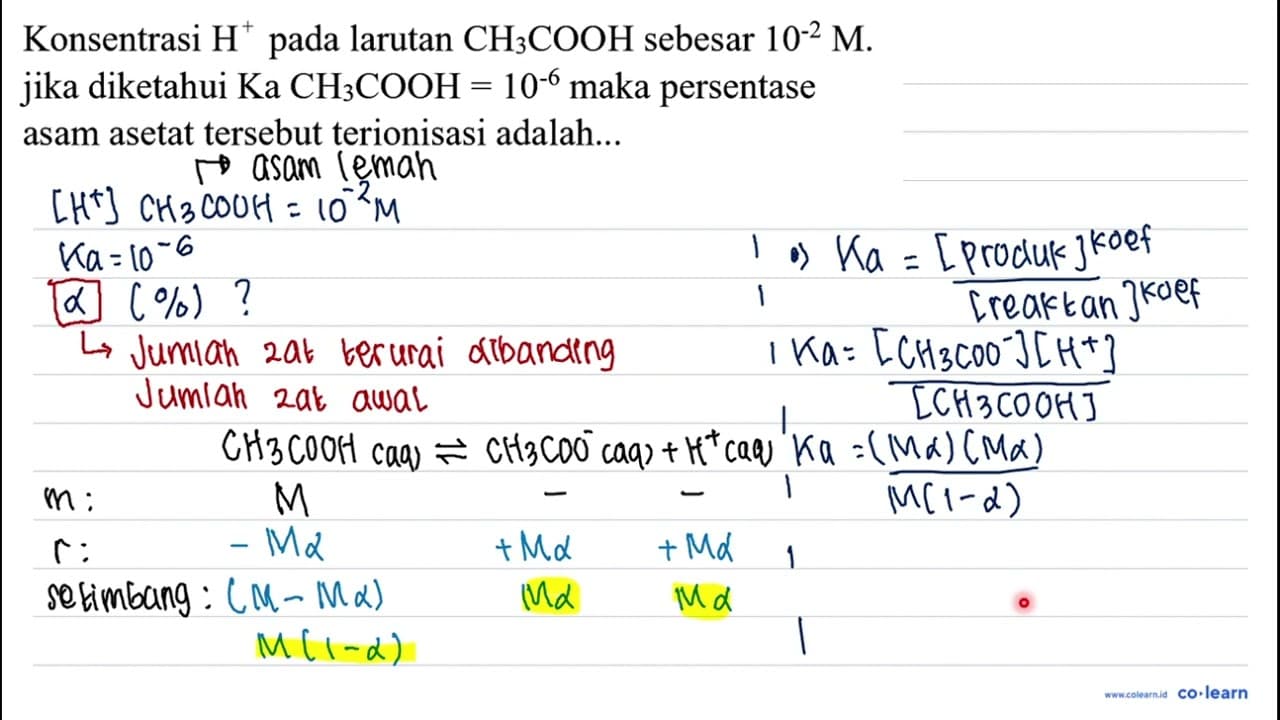 Konsentrasi H⁺ pada larutan CH₃COOH sebesar 10⁻² M.
jika diketahui Ka CH₃COOH = 10⁻⁶ maka persentase
asam asetat tersebut terionisasi adalah...
↱ asam lemah
[H⁺] CH₃COOH = 10⁻² M
Ka = 10⁻⁶
α (%) ?
↳ Jumlah zat terurai dibanding
Jumlah zat awal
CH₃COOH (aq) ⇌ CH₃COO⁻ (aq) + H⁺ (aq)
m : M - -
r : - Mα + Mα + Mα
setimbang : (M - Mα) Mα Mα
M(1-α)
•) Ka = [produk]ᵏᵒᵉᶠ
[reaktan]ᵏᵒᵉᶠ
Ka = [CH₃COO⁻][H⁺]
[CH₃COOH]
Ka = (Mα)(Mα)
M(1-α)
www.colearn.id co·learn